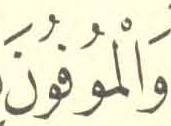 وَالْمُوفُونَ